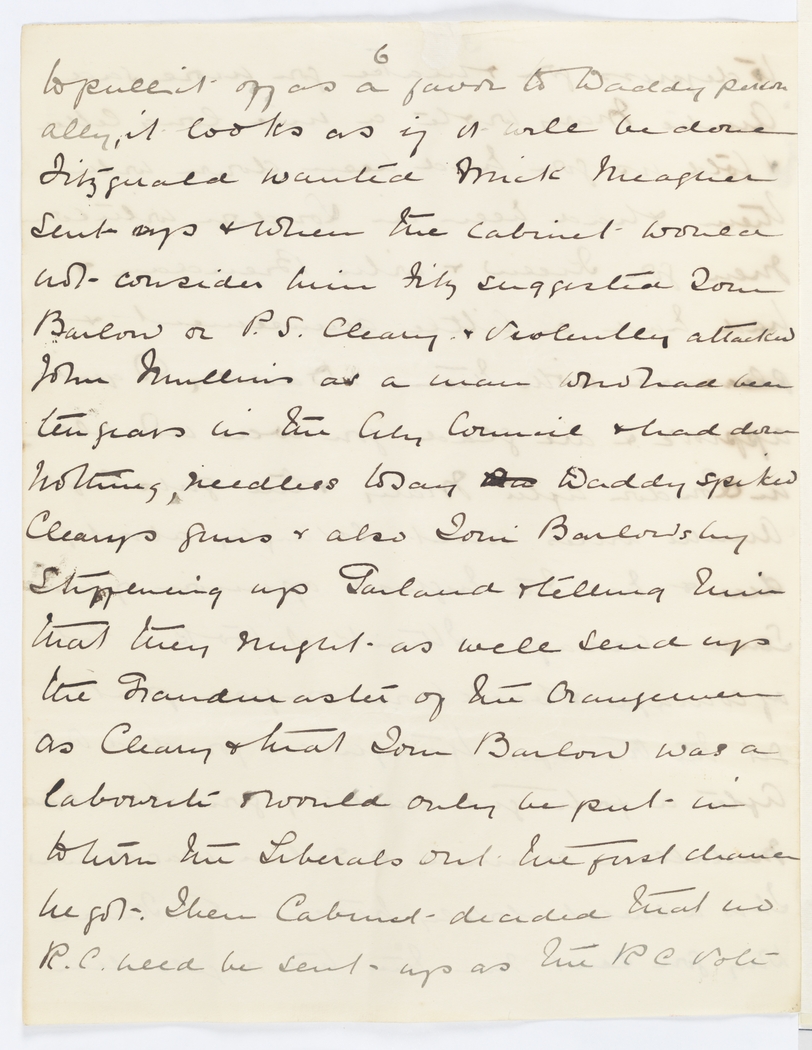 6
to pull it off as a favor to Daddy person
ally, it looks as if it will be done
Fitzgerald wanted Mick Meagher
sent up & when the cabinet would
not consider him Fitz suggested Tom
Barlow or P. S. Cleary. & violently attacked
John Mullins as a man who had been
ten years in the City Council & had done
nothing, needless to say Daddy spiked
Clearys guns & also Tom Barlow's by
Stiffening up Garland & telling him
that they might as well send up
the Grandmaster of the Orangemen
as Cleary & that Tom Barlow was a
labourite & would only be put in
to turn the Liberals out the first chance
he got. Then Cabinet decided that no
R.C. need be sent up as the R C vote